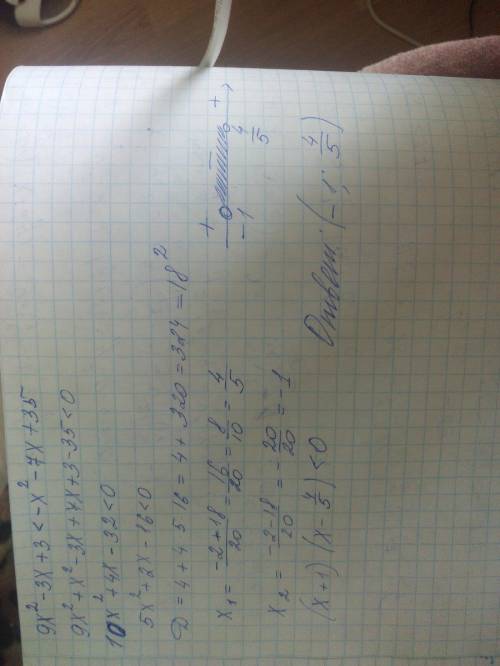 9x² - 3x + 3 < -x² - 7x + 35
9x² + x² - 3x + 7x + 3 - 35 < 0
10x² + 4x - 32 < 0
5x² + 2x - 16 < 0
D = 4 + 4·5·16 = 4 + 320 = 324 = 18²
x₁ = (-2 + 18)/20 = 16/20 = 8/10 = 4/5
+ - +
-1 4/5
x₂ = (-2 - 18)/20 = -20/20 = -1
(x + 1)(x - 4/5) < 0
Ответ: (-1; 4/5)